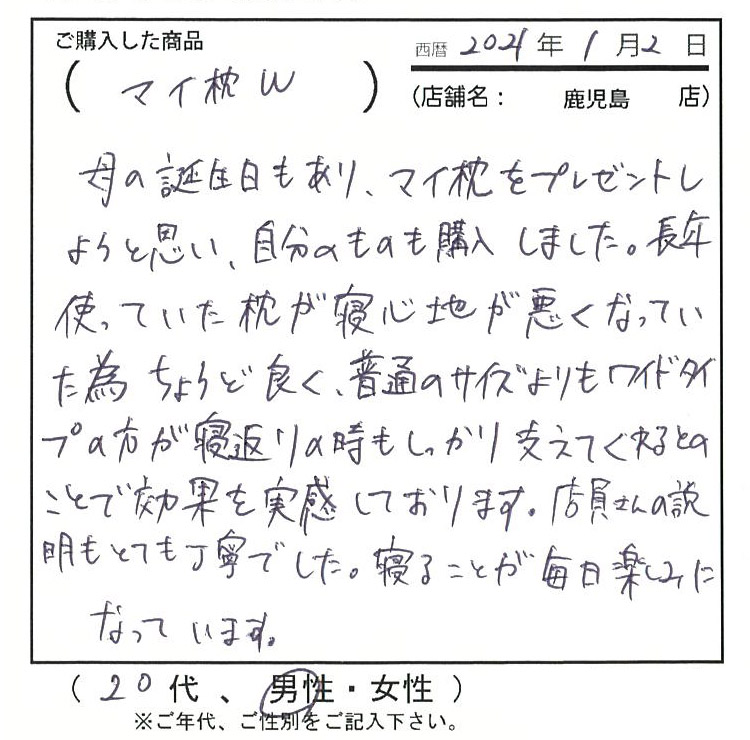 ご購入した商品
西暦 2021 年 1 月 2 日
( マイ枕W )
(店舗名： 鹿児島 店)
母の誕生日もあり、マイ枕をプレゼントし
ようと思い、自分のものも購入しました。長年
使っていた枕が寝心地が悪くなってい
た為ちょうど良く、普通のサイズよりもワイドタイ
プの方が寝返りの時もしっかり支えてくれるとの
ことで効果を実感しております。店員さんの説
明もとても丁寧でした。寝ることが毎日楽しみに
なっています。
( 20 代 、 男性・女性 )
※ご年代、ご性別をご記入下さい。